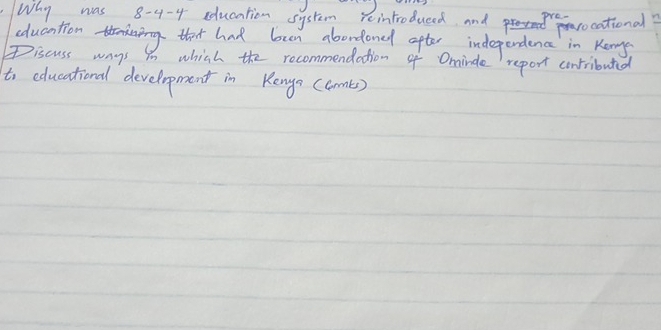 Why was 8-4-4 education system reintroduced and pre-vocational
education that had been abandoned after independence in Kenya
Discuss ways in which the recommendation of Ominde report contributed
to educational development in Kenya (6mks)